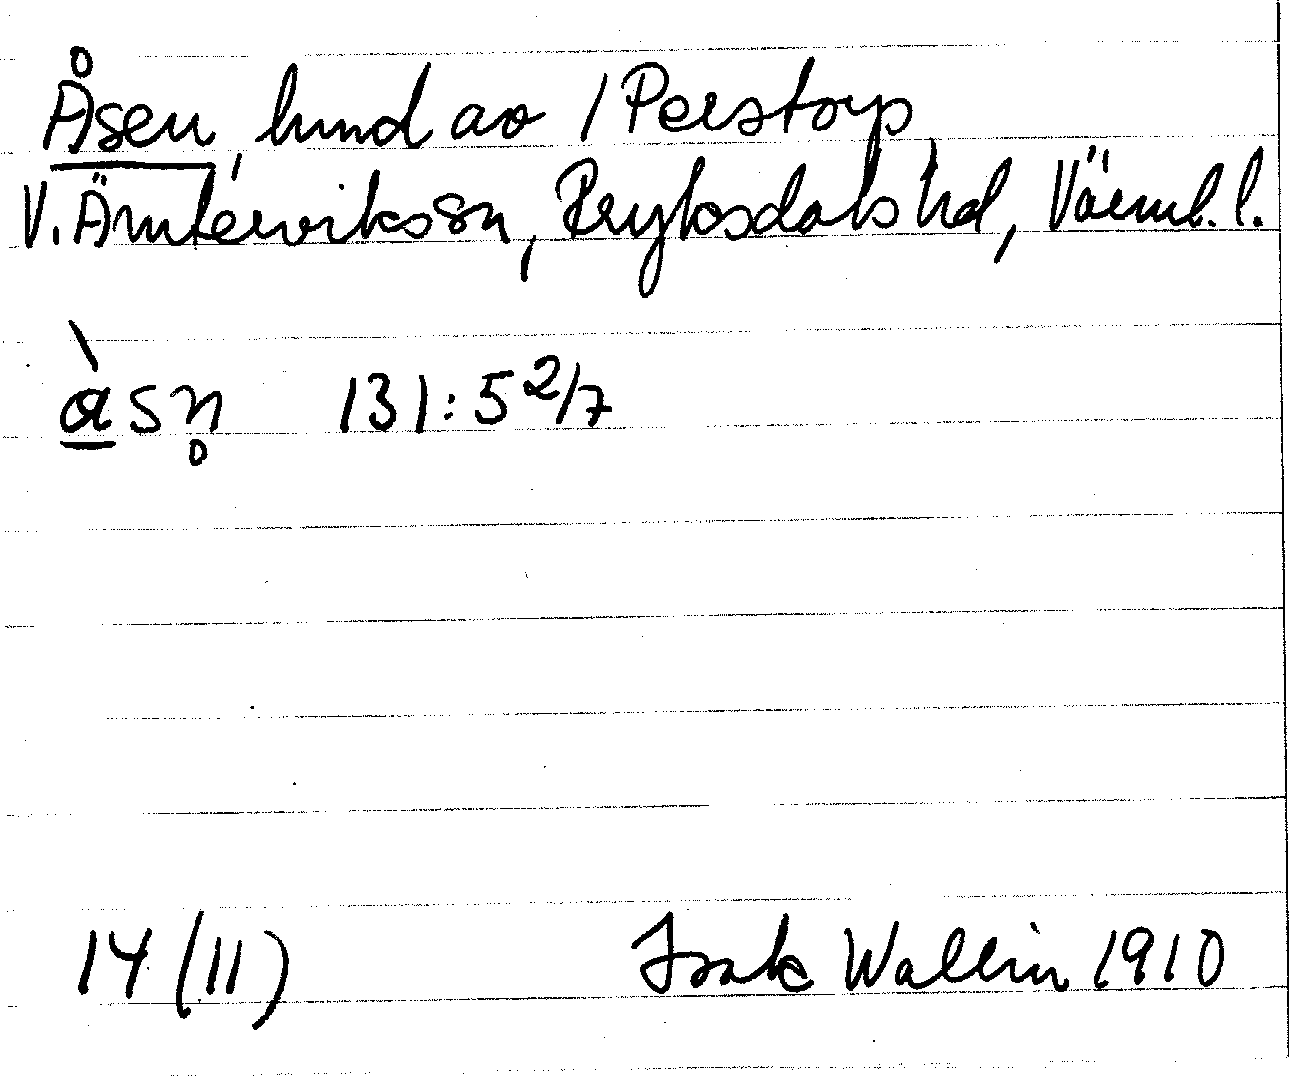 Åsen, hmd av 1 Perstorp
V. Ämterviks sn, Fryksdals hd, Värml. l.
àsn̥ 131:5 2/7
14 (11) Isak Wallin 1910